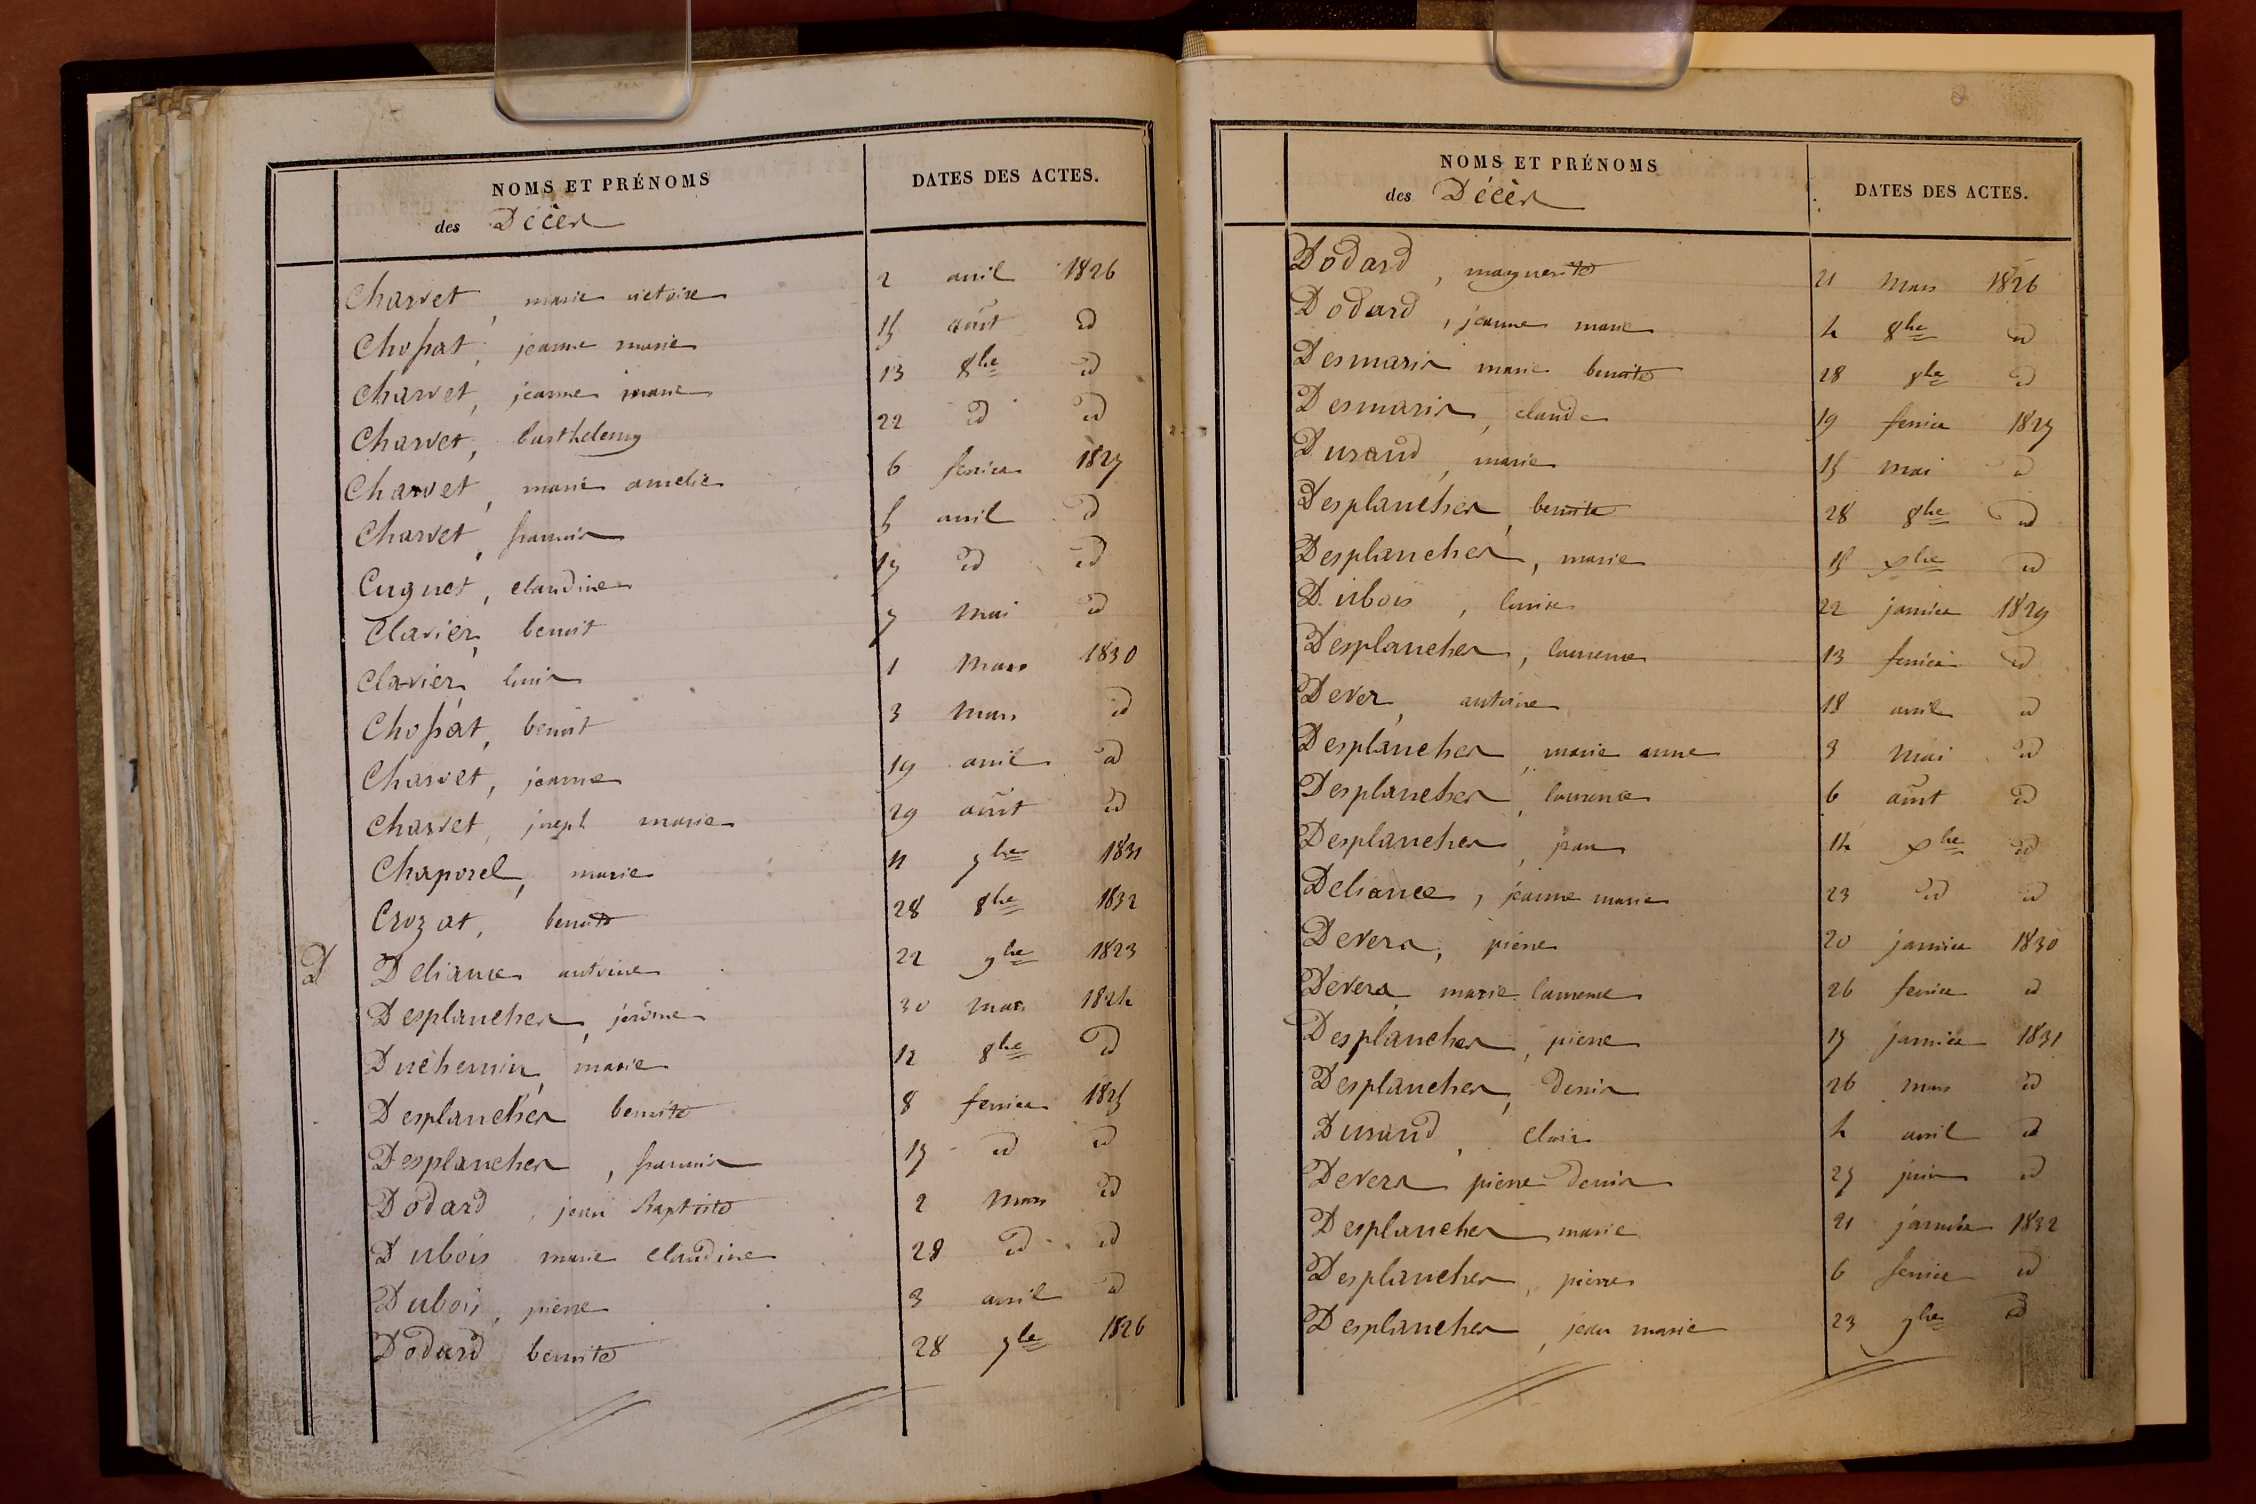 NOMS ET PRÉNOMS DATES DES ACTES.
des Décès
Charvet, marie victoire 2 avril 1826
Chossat, jeanne marie 15 août id
Charvet, jeanne marie 13 8bre id
Charvet, barthelemy 22 id id
Charvet, marie amelie 6 fevrier 1827
Charvet, francois 5 avril id
Cuguet, claudine 17 id id
Clavier, benoit 7 mai id
Clavier, louis 1 mars 1830
Chossat, benoit 3 mars id
Charvet, jeanne 19 avril id
Charvet, joseph marie 29 août id
Chaporel, marie 11 7bre 1831
Crozat, benoite 28 8bre 1832
D Deliance antoine 22 9bre 1823
Desplanches, jerôme 30 mars 1824
Duchemin, marie 12 8bre id
Desplanches benoite 8 fevrier 1825
Desplanches, francois 17 id id
Dodard, jean Baptiste 2 mars id
Dubois marie claudine 28 id id
Dubois, pierre 3 avril id
Dodard benoite 28 7bre 1826
NOMS ET PRÉNOMS DATES DES ACTES.
des Décès
Dodard, marguerite 21 mars 1826
Dodard, jeanne marie 4 8bre id
Desmaris marie benoite 28 8bre id
Desmaris, claude 19 fevrier 1827
Durand, marie 15 mai id
Desplanches, benoite 28 8bre id
Desplanches, marie 15 xbre id
Dubois, louise 22 janvier 1829
Desplanches, laurence 13 fevrier id
Dever, antoine 18 avril id
Desplanches, marie anne 3 mai id
Desplanches, laurence 6 août id
Desplanches, jean 14 xbre id
Deliance, jeanne marie 23 id id
Devers, pierre 20 janvier 1830
Devers, marie laurence 26 fevrier id
Desplanches, pierre 17 janvier 1831
Desplanches, denis 26 mars id
Durand, clair 4 avril id
Devers pierre denis 27 juin id
Desplanches marie 21 janvier 1832
Desplanches, pierre 6 fevrier id
Desplanches, jean marie 23 9bre id